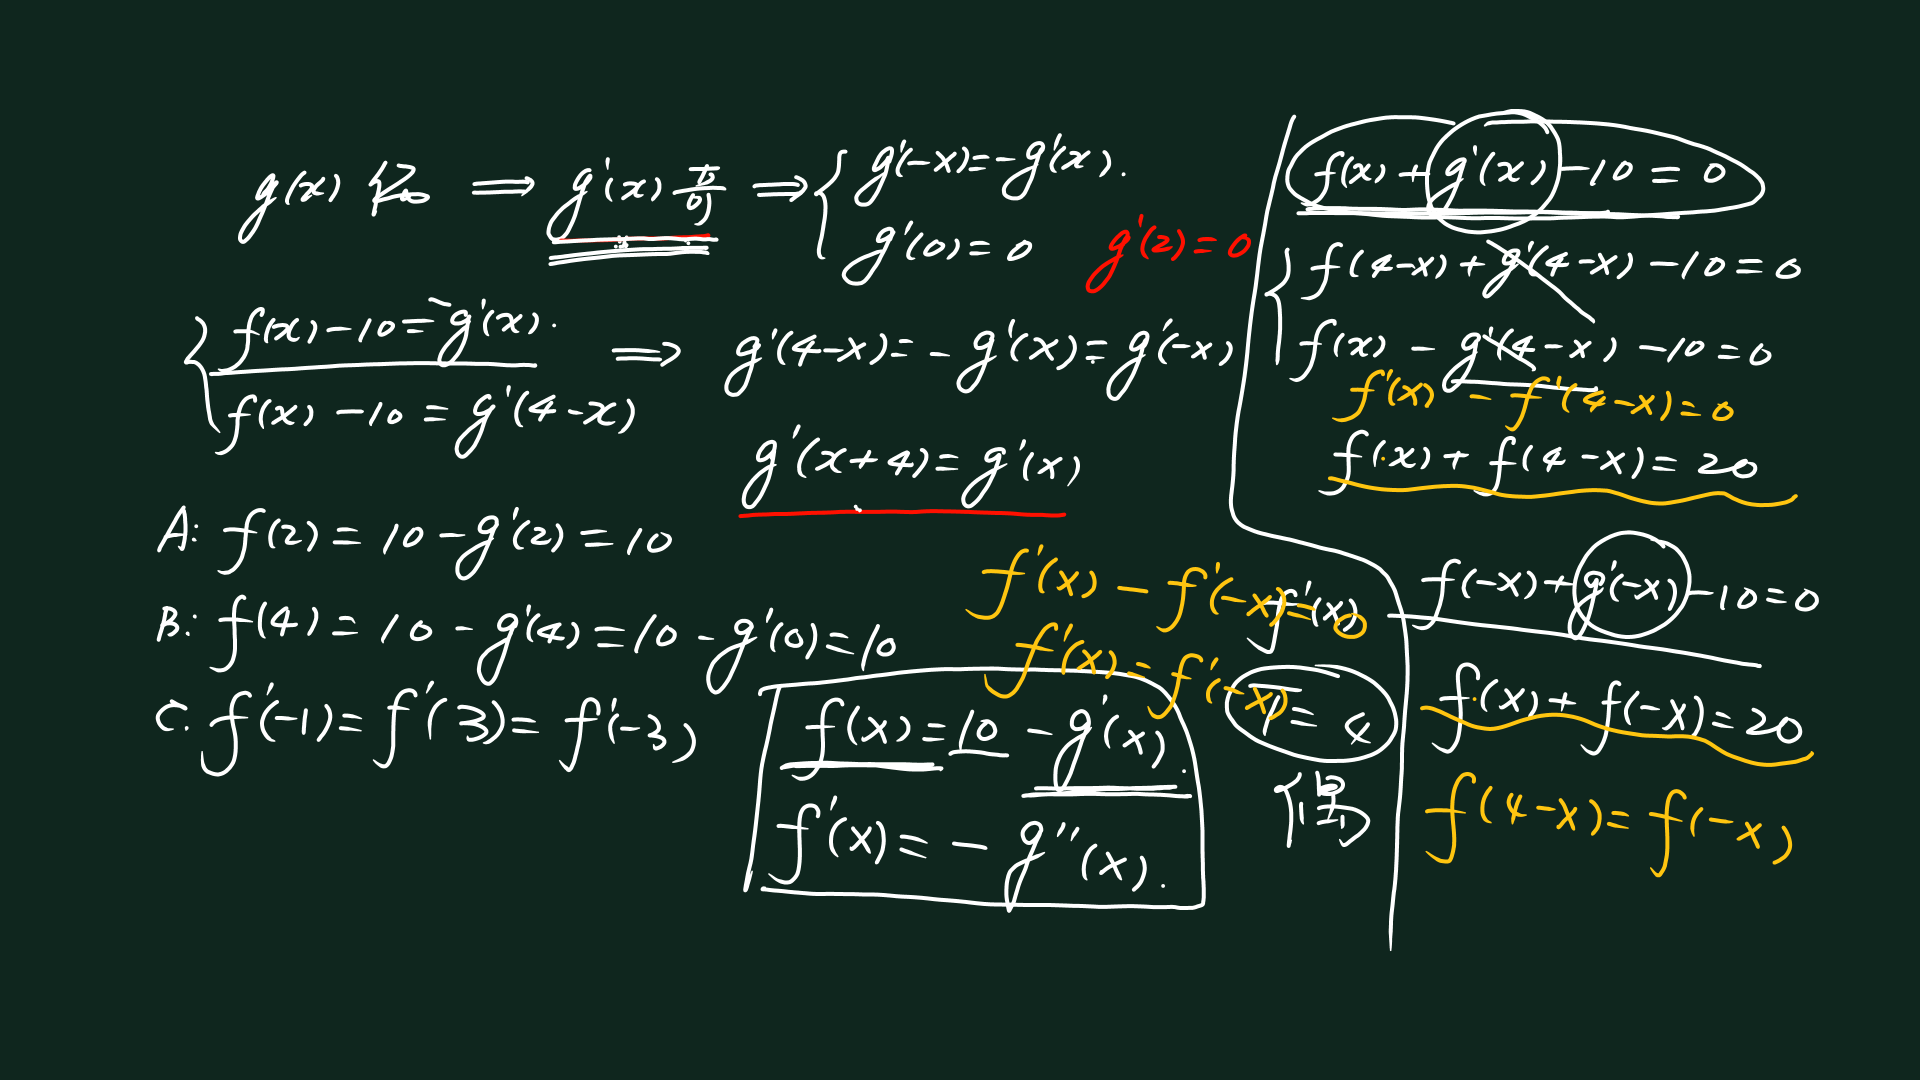 g(x) 偶 ⇒ g'(x) 奇 ⇒ { g'(-x)=-g'(x).
g'(0)=0
g'(2)=0
{ f(x)-10=-g'(x).
f(x)-10=g'(4-x)
⇒ g'(4-x)=-g'(x)=g'(-x)
g'(x+4)=g'(x)
A: f(2)=10-g'(2)=10
B: f(4)=10-g'(4)=10-g'(0)=10
C. f'(-1)=f'(3)=f'(-3)
f'(x)-f'(-x)=0
f'(x)=f'(-x)
f(x)=10-g'(x).
f'(x)=-g''(x).
f'(x)
T=4
偶
f(x)+g'(x)-10=0
{ f(4-x)+g'(4-x)-10=0
f(x)-g'(4-x)-10=0
f'(x)-f'(4-x)=0
f(x)+f(4-x)=20
f(-x)+g'(-x)-10=0
f(x)+f(-x)=20
f(4-x)=f(-x)